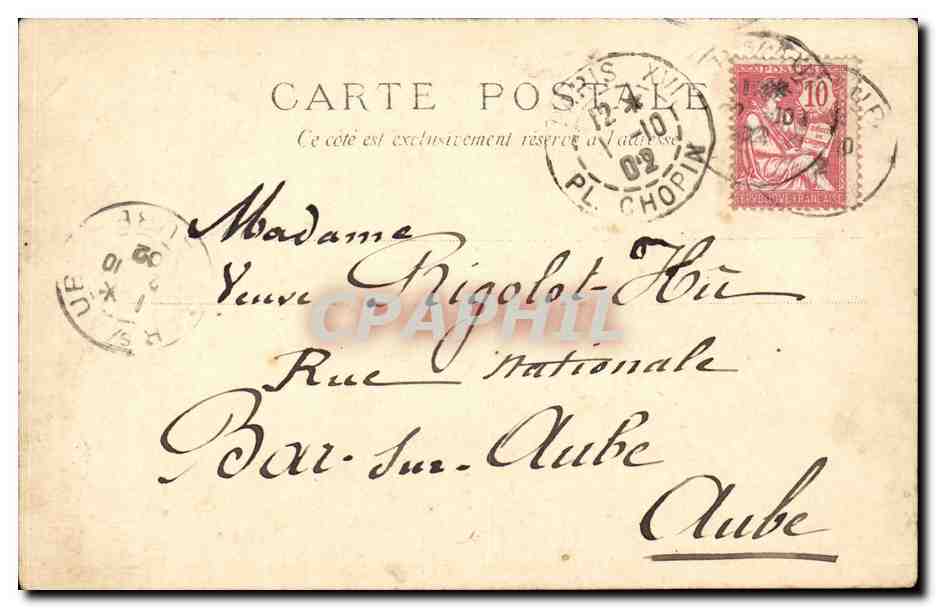 CARTE POSTALE
Ce côté est exclusivement réservé à l'adresse
PARIS XVI
12 *
1 -10
02
PL. CHOPIN
10
POSTES
RÉPUBLIQUE FRANÇAISE
Madame
Veuve Rigolot-Hû
Rue Nationale
Bar-sur-Aube
Aube
CPAPHIL